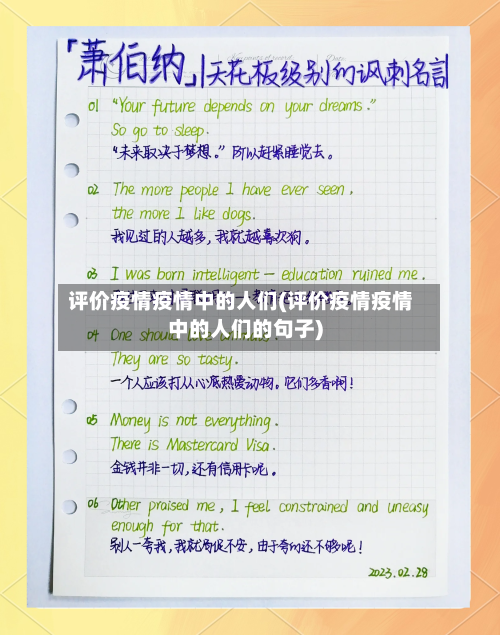 「萧伯纳」|天花板级别的讽刺名言
01 "Your future depends on your dreams."
So go to sleep.
"未来取决于梦想。"所以赶紧睡觉去。
02 The more people I have ever seen,
the more I like dogs.
我见过的人越多,我就越喜欢狗。
03 I was born intelligent — education ruined me.
评价疫情疫情中的人们(评价疫情疫情
中的人们的句子)
04 One should love animals.
They are so tasty.
一个人应该打从心底热爱动物。它们多香啊!
05 Money is not everything.
There is Mastercard Visa.
金钱并非一切,还有信用卡呢。
06 Other praised me, I feel constrained and uneasy
enough for that.
别人一夸我,我就局促不安,由于夸的还不够呢!
2023.02.28